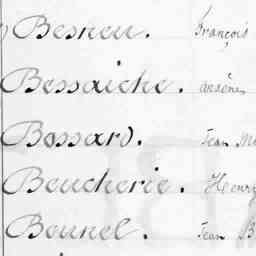 Besneu. François
Bessaiche. arsène
Bossard. Jean
Boucherie. Henry
Bounel. Jean B